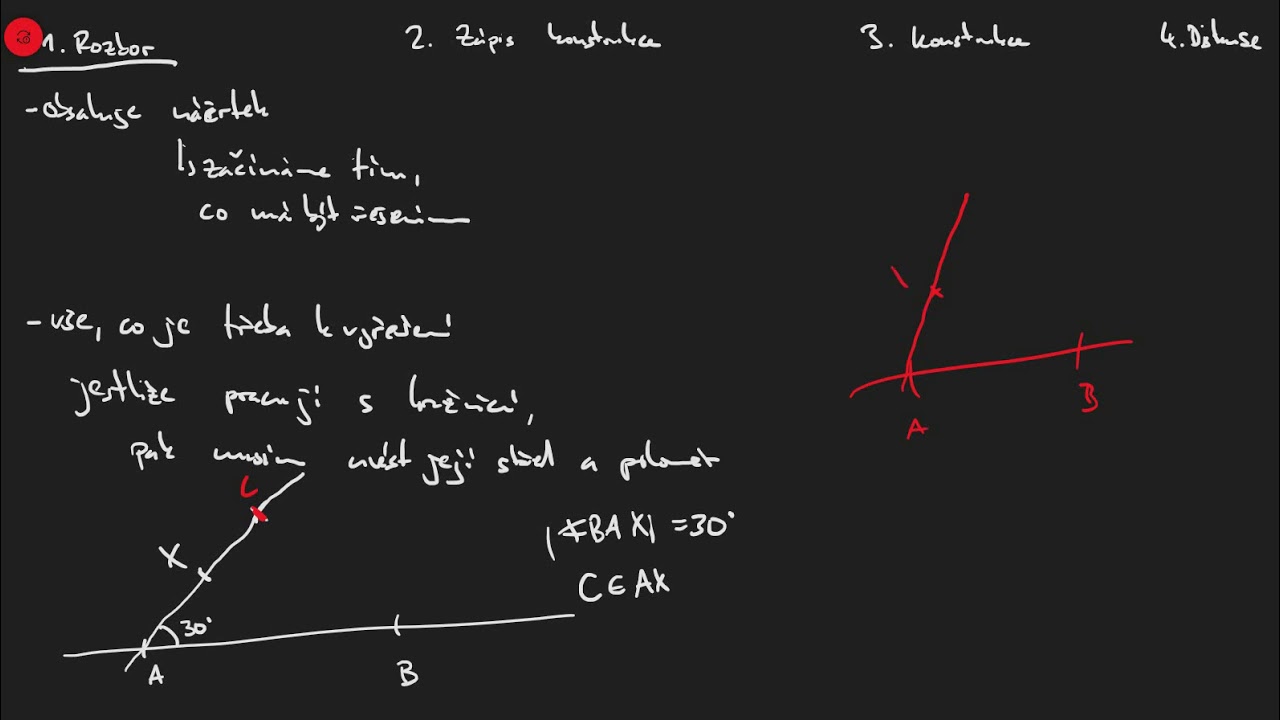 1. Rozbor
2. Zápis konstrukce
3. Konstrukce
4. Diskuse
- obsahuje náčrtek
začínáme tím,
co má být řešením
- vše, co je třeba k vyřešení
jestliže pracuji s kružnicí,
pak musím uvést její střed a poloměr
C
X
30°
A
B
|∢BAX| = 30°
C ∈ AX
A
B